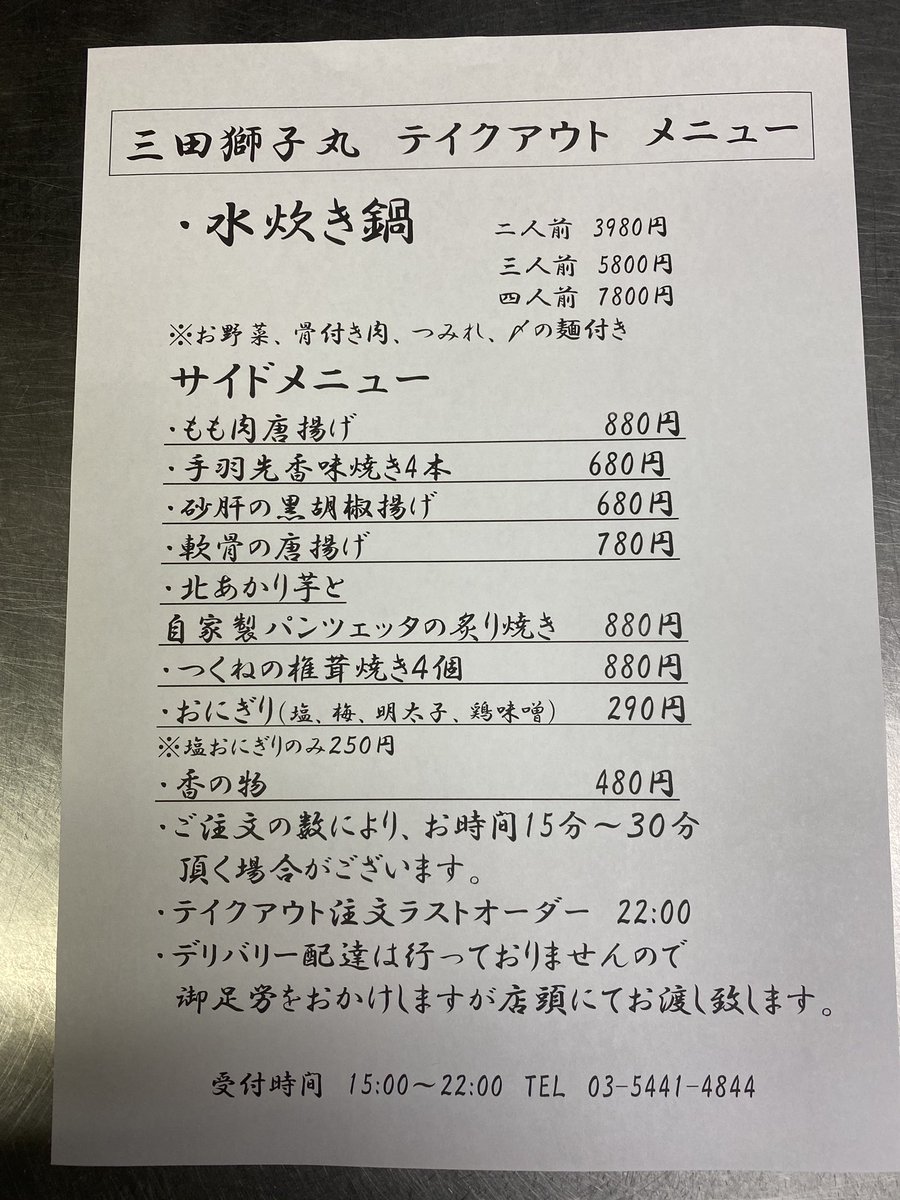 三田獅子丸 テイクアウト メニュー
・水炊き鍋 二人前 3980円
三人前 5800円
四人前 7800円
※お野菜、骨付き肉、つみれ、〆の麺付き
サイドメニュー
・もも肉唐揚げ 880円
・手羽先香味焼き4本 680円
・砂肝の黒胡椒揚げ 680円
・軟骨の唐揚げ 780円
・北あかり芋と
自家製パンツェッタの炙り焼き 880円
・つくねの椎茸焼き4個 880円
・おにぎり(塩、梅、明太子、鶏味噌) 290円
※塩おにぎりのみ250円
・香の物 480円
・ご注文の数により、お時間15分～30分
頂く場合がございます。
・テイクアウト注文ラストオーダー 22:00
・デリバリー配達は行っておりませんので
御足労をおかけしますが店頭にてお渡し致します。
受付時間 15:00～22:00 TEL 03-5441-4844